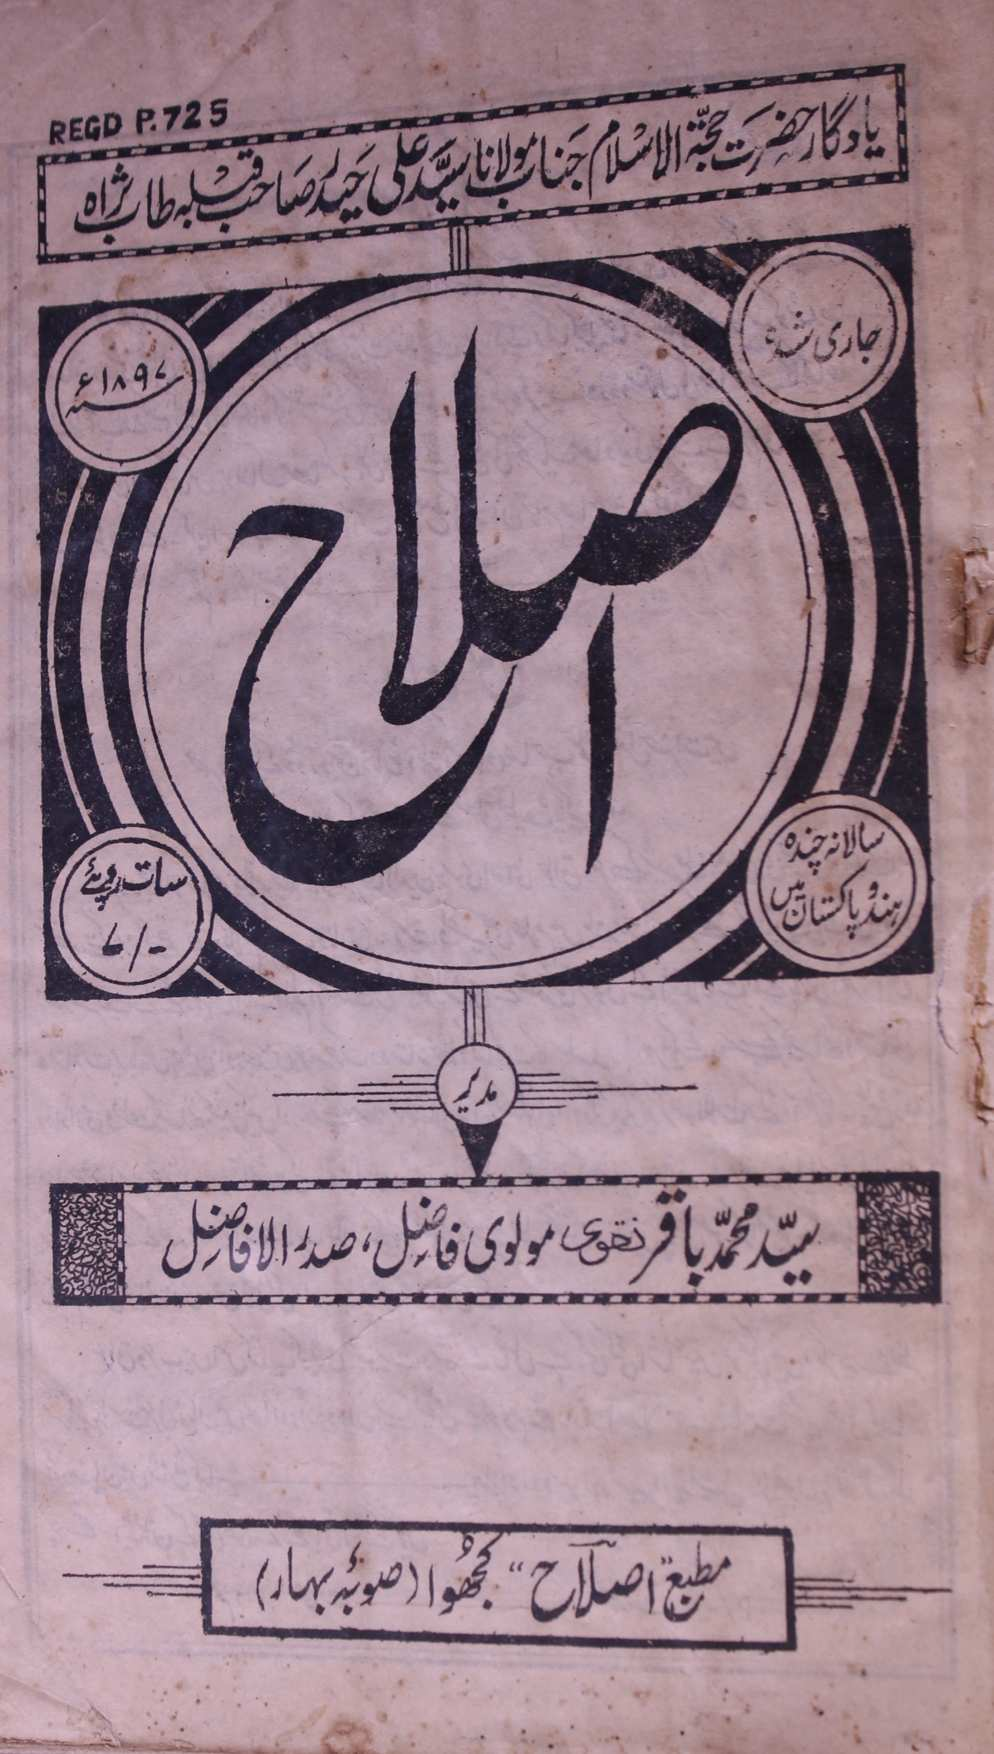 REGD P.725
یادگار حضرت حجۃ الاسلام جناب مولانا سید علی حیدر صاحب قبلہ طاب ثراہ
جاری شدہ
سنہ ۱۸۹۷ء
اصلاح
سالانہ چندہ
ہندو پاکستان میں
سات روپئے
۷/-
مدیر
سیّد محمّد باقر نقوی مولوی فاضل، صدر الافاضل
مطبع "اصلاح" کجھُوا (صوبۂ بہار)